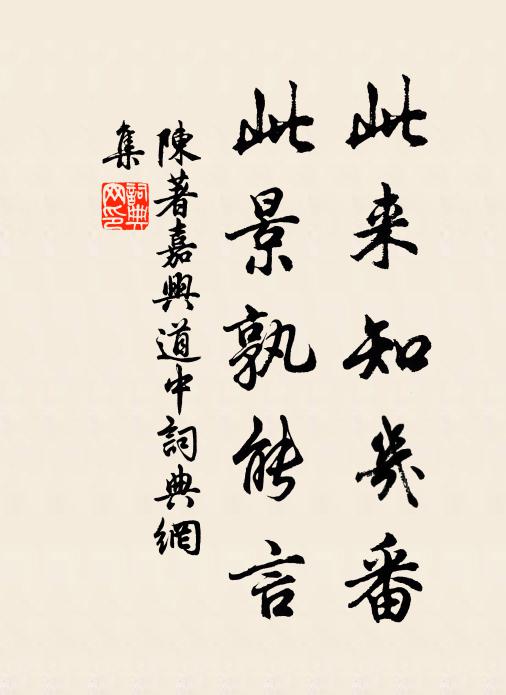 此来知幾番
此景孰能言
陳著嘉興道中詞典網
集
詞典
网印